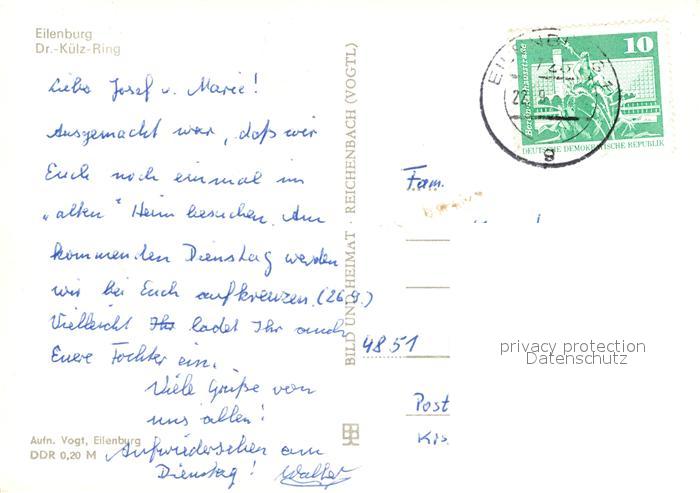 Eilenburg
Dr.-Külz-Ring
Liebe Josef u. Marie!
Ausgemacht war, daß wir
Euch noch einmal im
„alten“ Heim besuchen. Am
kommenden Dienstag werden
wir bei Euch aufkreuzen. (26.9.)
Vielleicht Ihr ladet Ihr auch
Eure Tochter ein.
Viele Grüße von
uns allen!
Aufwiedersehen am
Dienstag! Walter
Aufn. Vogt, Eilenburg
DDR 0,20 M
BILD UND HEIMAT · REICHENBACH (VOGTL)
10
DEUTSCHE DEMOKRATISCHE REPUBLIK
EILENBURG
22.9.
g
Fam.
4851
privacy protection
Datenschutz
Post